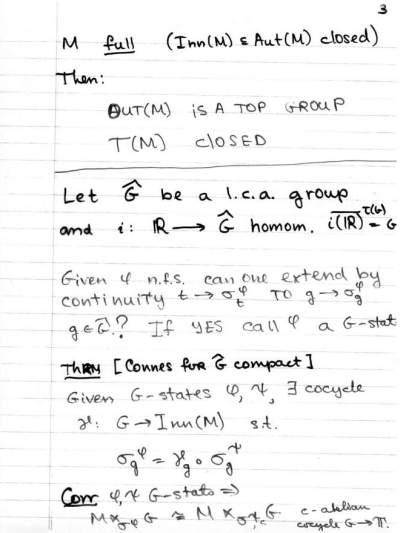 3
M full (Inn(M) ⊆ Aut(M) closed)
Then:
OUT(M) is A TOP GROUP
T(M) closed
Let Ĝ be a l.c.a. group
and i: ℝ → Ĝ homom. i(ℝ) = G
Given φ n.f.s. can one extend by
continuity t → σ_t^φ TO g → σ_g^φ
g ∈ Ĝ? If YES call φ a G-stat
THM [Connes for Ĝ compact]
Given G-states φ, ψ, ∃ cocycle
γ: G → Inn(M) s.t.
σ_g^φ = γ_g ∘ σ_g^ψ
Corr φ, ψ G-stats ⇒
M ×_σφ G ≅ M ×_σψ,c G. c-abelian
cocycle G → 𝕋.